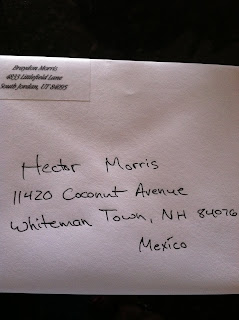 Braydon Morris
4933 Littlefield Lane
South Jordan, UT 84095
Hector Morris
11420 Coconut Avenue
Whiteman Town, NH 84076
Mexico